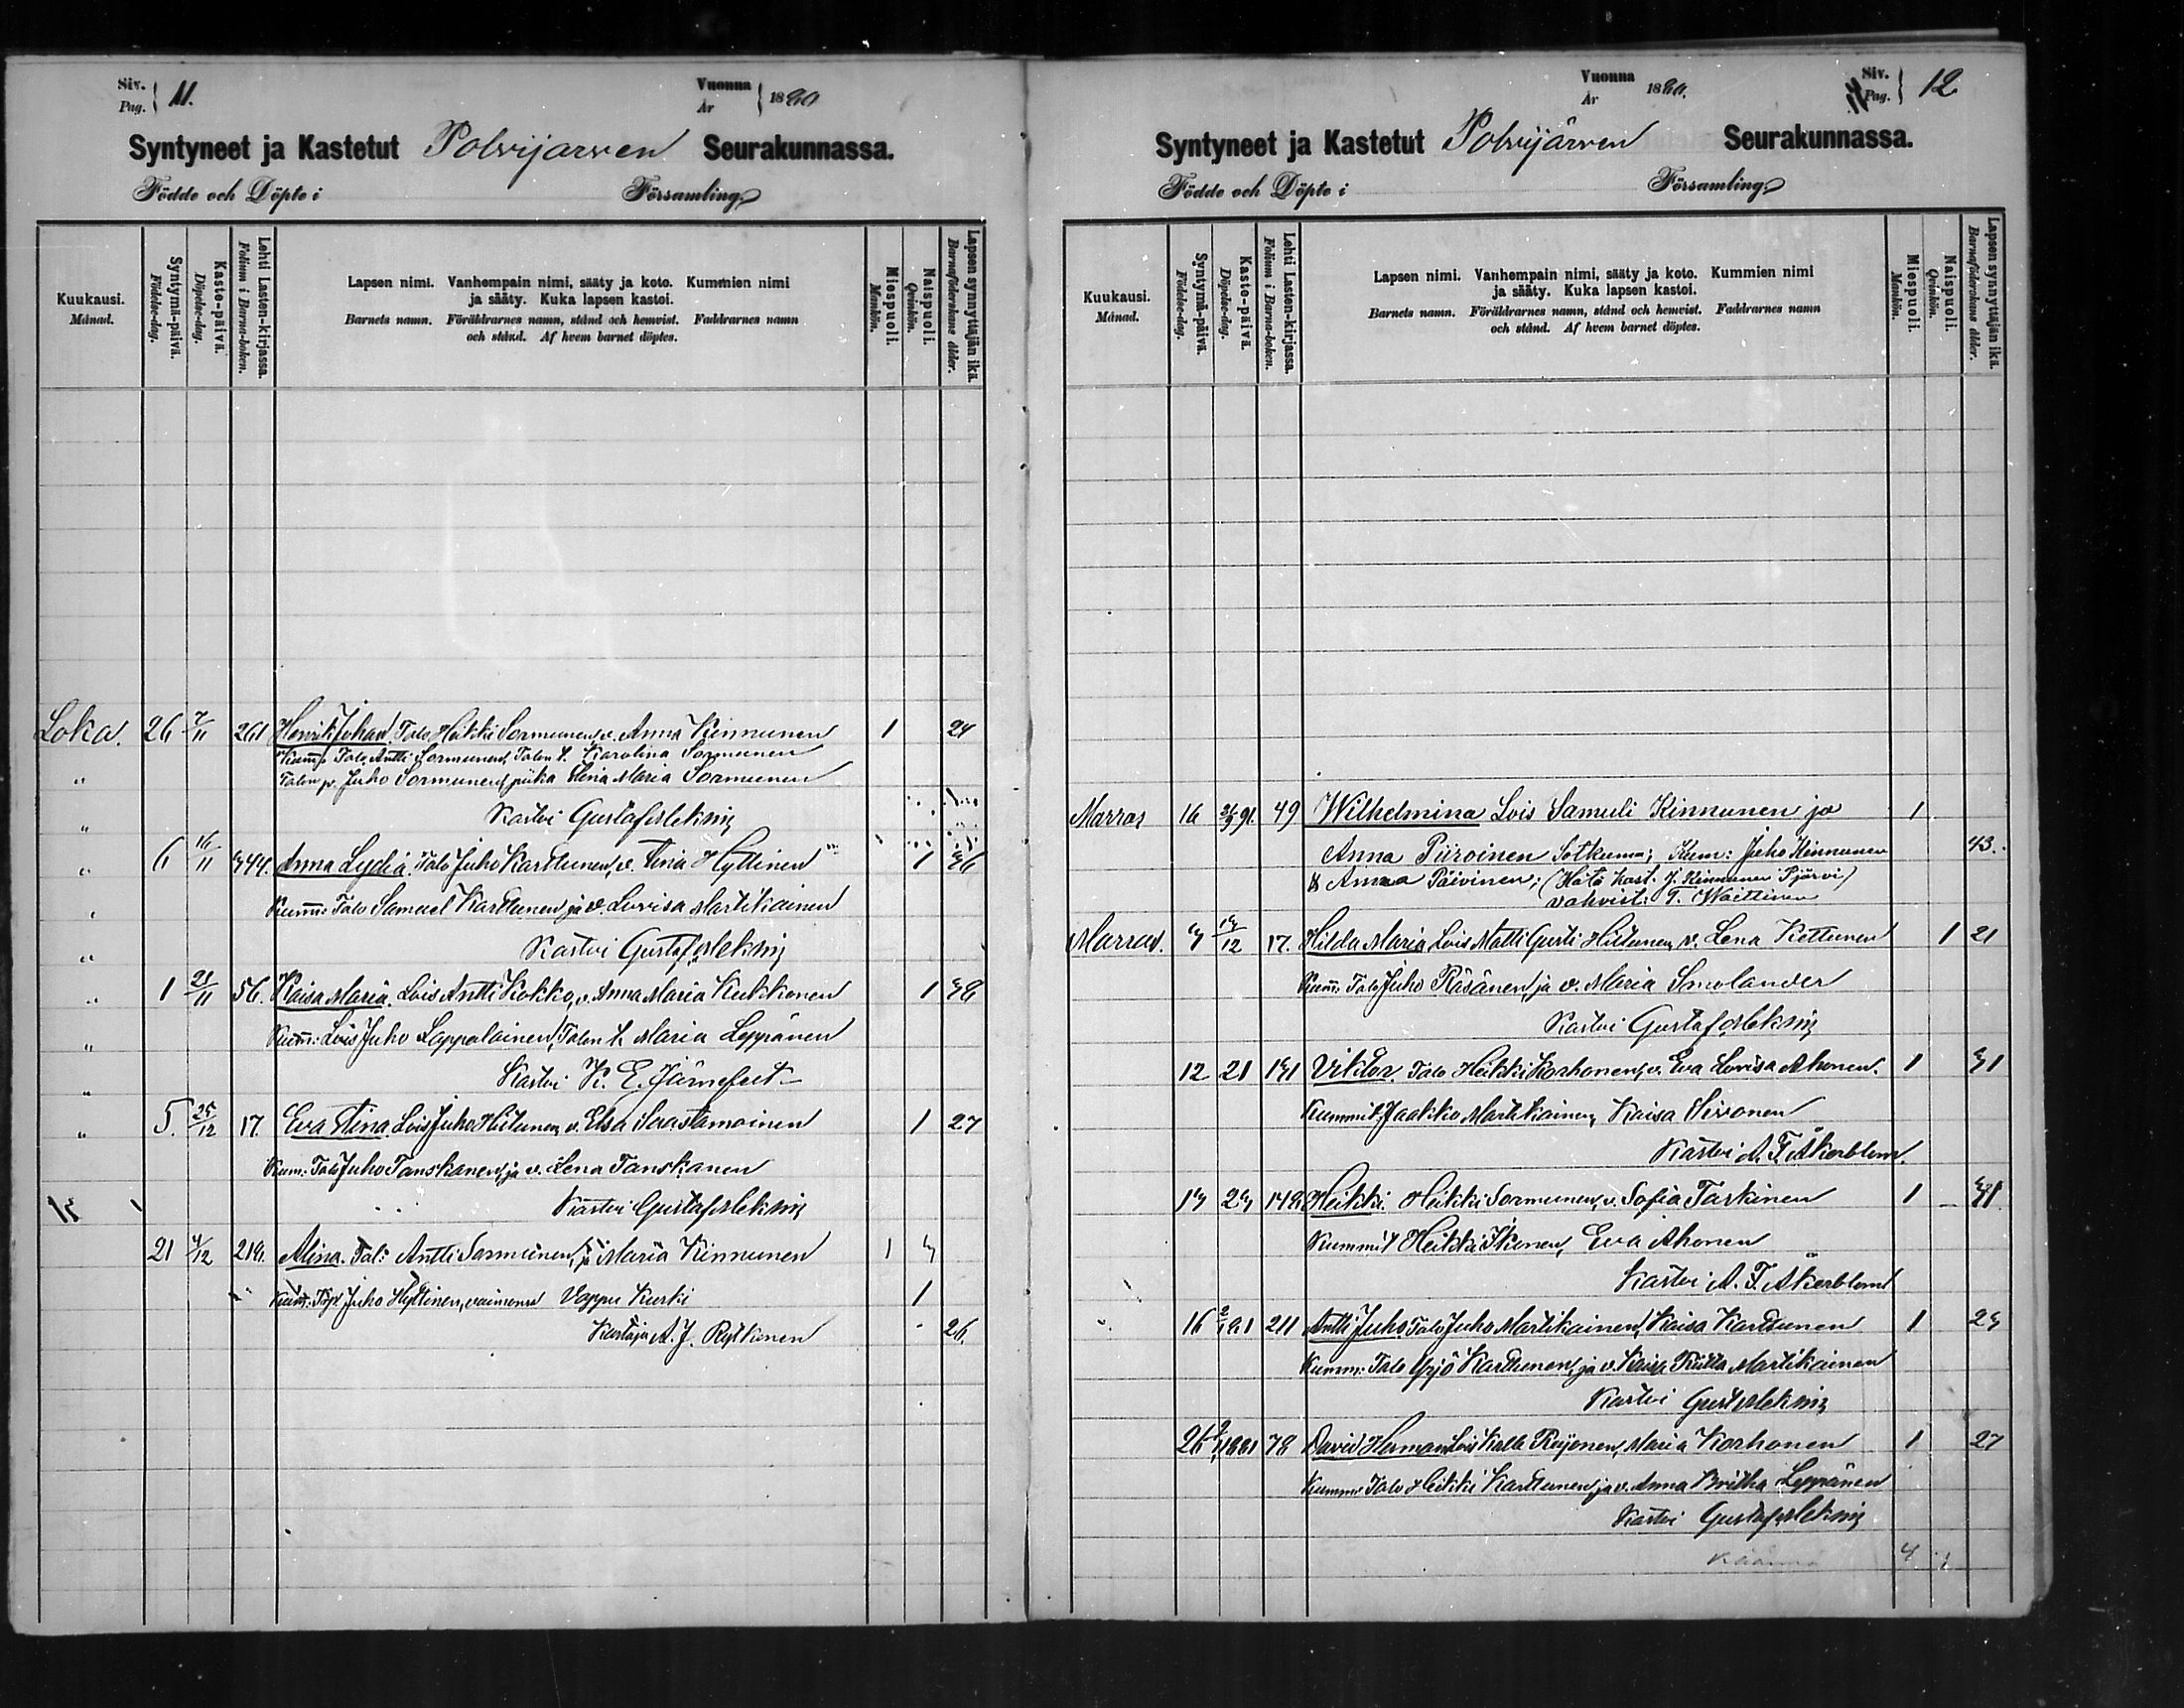 Siv.
Pag. } 11.
Vuonna
År } 1880
Syntyneet ja Kastetut Polvijarven Seurakunnassa.
Födde och Döpte i Församling
Kuukausi.
Månad.
Syntymä-päivä.
Födelse-dag.
Kaste-päivä.
Döpelse-dag.
Lehti Lasten-kirjassa.
Folium i Barna-boken.
Lapsen nimi. Vanhempain nimi, sääty ja koto. Kummien nimi
ja sääty. Kuka lapsen kastoi.
Barnets namn. Föräldrarnes namn, stånd och hemvist. Faddrarnes namn
och stånd. Af hvem barnet döptes.
Miespuoli.
Mankön.
Naispuoli.
Qvinkön.
Lapsen synnyttäjän ikä.
Barnaföderskans ålder.
Loka. 26 7/11 261 Henrik Johan. Talo Heikki Sormunen, v. Anna Kinnunen 1 24
Kumm: Talo Antti Sormunen, Talon t. Karolina Sormunen
" Talon p. Juho Sormunen, piika Elina Maria Sormunen
" Kastoi Gustaf
" 6 16/11 344. Anna Lydia. Talo Juho Karttunen, v. Tiina Hyttinen 1 36
Kumm: Talo Samuel Karttunen ja v. Lovisa Martikainen
" Kastoi Gustaf
" 1 21/11 56. Kaisa Maria. Lois Antti Kokko, v. Anna Maria Kukkonen 1 38
" Kumm: Lois Juho Lappalainen, Talon t. Maria Leppänen
" Kastoi K. E. Järnefelt
" 5. 25/12 17. Eva Tiina. Lois Juho Hiltunen, v. Elsa Saastamoinen 1 27
Kum: Talo Juho Tanskanen, ja v. Lena Tanskanen
Kastoi Gustaf
21 4/12 218. Alina. Tal: Antti Sormunen, ja Maria Kinnunen 1
Kumm: Juho Hyttinen, vaimonsa Vappu Kurki 1
Kastaja A. J. Rytkönen 26
Vuonna
År 1880.
Siv.
Pag. } 12
Syntyneet ja Kastetut Polvijärven Seurakunnassa.
Födde och Döpte i Församling
Kuukausi.
Månad.
Syntymä-päivä.
Födelse-dag.
Kaste-päivä.
Döpelse-dag.
Lehti Lasten-kirjassa.
Folium i Barna-boken.
Lapsen nimi. Vanhempain nimi, sääty ja koto. Kummien nimi
ja sääty. Kuka lapsen kastoi.
Barnets namn. Föräldrarnes namn, stånd och hemvist. Faddrarnes namn
och stånd. Af hvem barnet döptes.
Miespuoli.
Mankön.
Naispuoli.
Qvinkön.
Lapsen synnyttäjän ikä.
Barnaföderskans ålder.
Marras 16 49 Wilhelmina Lois Samuli Kinnunen ja 1
Anna Piiroinen Sotkuma; Kum: Juho Kinnunen 43.
& Anna Päivinen; (Hätä kast. J. Kinnunen Pjärvi)
vahvist: T. Waittinen
Marras. 17. Hilda Maria. Lois Matti Gusti Hiltunen, v. Lena Kettunen 1 21
Kumm: Talo Juho Räsänen, ja v. Maria Smolander
Kastoi Gustaf
12 21 131 Viktor. Talo Heikki Korhonen, v. Eva Lovisa Ahonen. 1 31
Kummit: Jaakko Martikainen, Kaisa Sivonen
Kastoi A. F. Åkerblom.
148. Heikki. Heikki Sormunen, v. Sofia Tarkinen 1
Kummit Heikki Ikonen, Eva Ahonen
Kastoi A. F. Åkerblom
16 2/1 81 211 Antti Juho. Talo Juho Martikainen, Kaisa Karttunen 1 23
Kumm: Talo Yrjö Karttunen, ja v. Kaisa Riitta Martikainen
Kastoi Gust
26 2/1 1881 78 David Herman. Lois Kalle Reijonen, Maria Korhonen 1 27
Kumm: Talo Heikki Karttunen, ja v. Anna Britha Leppänen
Kastoi Gustaf
Käännä 4 1